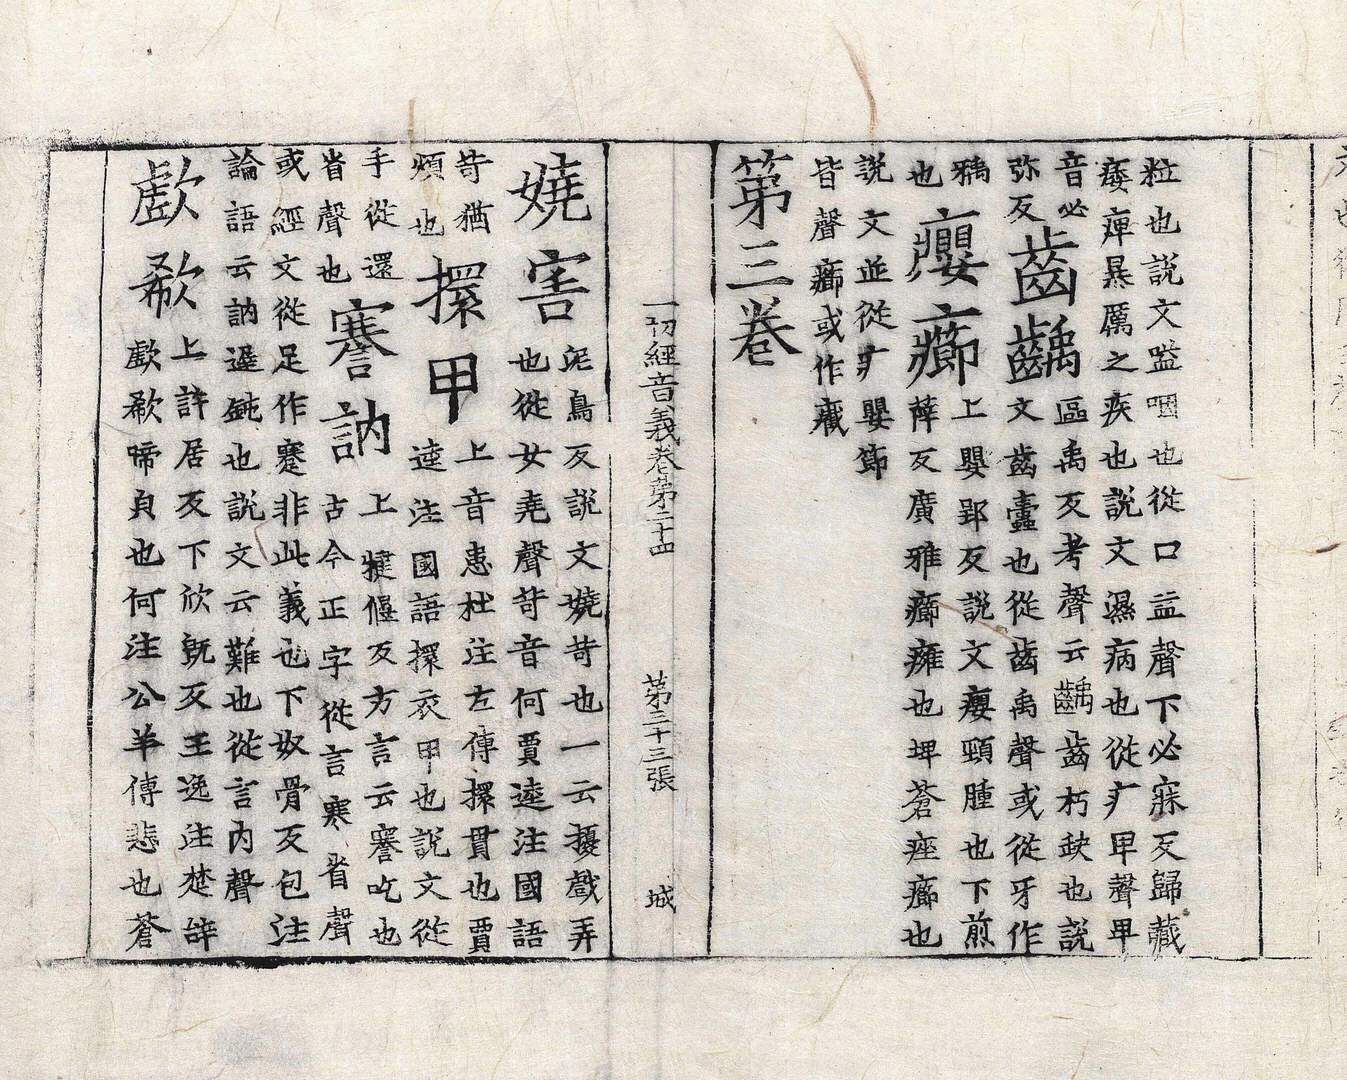 粒也說文嗌咽也從口益聲下必寐反歸藏
痿痺㬥厲之疾也說文濕病也從疒卑聲卑
音必
弥反
齒齲
區禹反考聲云齲齒朽缺也說
文齒蠹也從齒禹聲或從牙作
㺄
也
癭癤
上嬰郢反說文癭頸腫也下煎
薛反廣雅癤癰也埤蒼痤癤也
說文並從疒嬰節
皆聲癤或作𤻰
第三卷
一切經音義卷第三十四 第三十三張 城
嬈害
泥鳥反說文嬈苛也一云擾戲弄
也從女堯聲苛音何賈逵注國語
苛猶
煩也
擐甲
上音患杜注左傳擐貫也賈
逵注國語擐衣甲也說文從
手從還
省聲也
謇訥
上犍偃反方言云謇吃也
古今正字從言寒省聲
或經文從足作蹇非此義也下奴骨反包注
論語云訥遲鈍也說文云難也從言內聲
歔欷
上許居反下欣旣反王逸注楚辞
歔欷啼皃也何注公羊傳悲也蒼